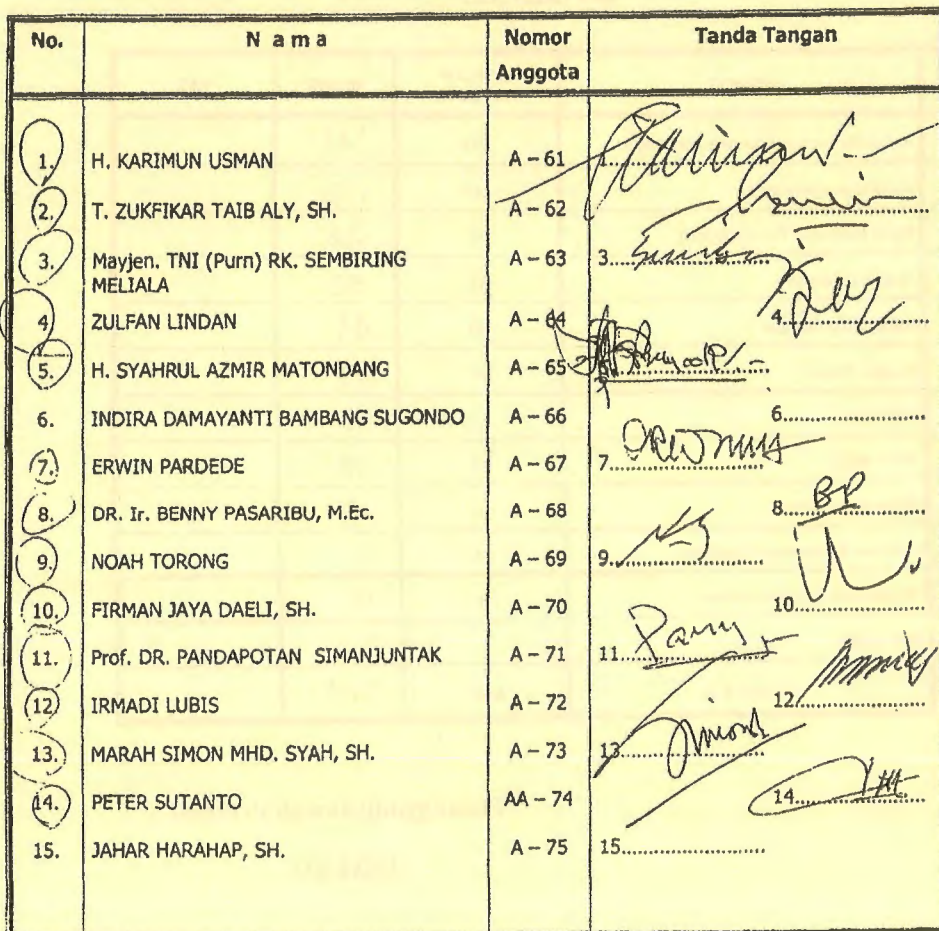 No. N a m a Nomor Anggota Tanda Tangan
1. H. KARIMUN USMAN A – 61 1.
2. T. ZUKFIKAR TAIB ALY, SH. A – 62 2..............................
3. Mayjen. TNI (Purn) RK. SEMBIRING A – 63 3..............................
MELIALA
4 ZULFAN LINDAN A – 64 4..............................
5. H. SYAHRUL AZMIR MATONDANG A – 65
6. INDIRA DAMAYANTI BAMBANG SUGONDO A – 66 6..............................
7. ERWIN PARDEDE A – 67 7..............................
8. DR. Ir. BENNY PASARIBU, M.Ec. A – 68 BP 8..............................
9. NOAH TORONG A – 69 9..............................
10. FIRMAN JAYA DAELI, SH. A – 70 10..............................
11. Prof. DR. PANDAPOTAN SIMANJUNTAK A – 71 11..............................
12 IRMADI LUBIS A – 72 12..............................
13. MARAH SIMON MHD. SYAH, SH. A – 73 13..............................
14. PETER SUTANTO AA – 74 14..............................
15. JAHAR HARAHAP, SH. A – 75 15..............................